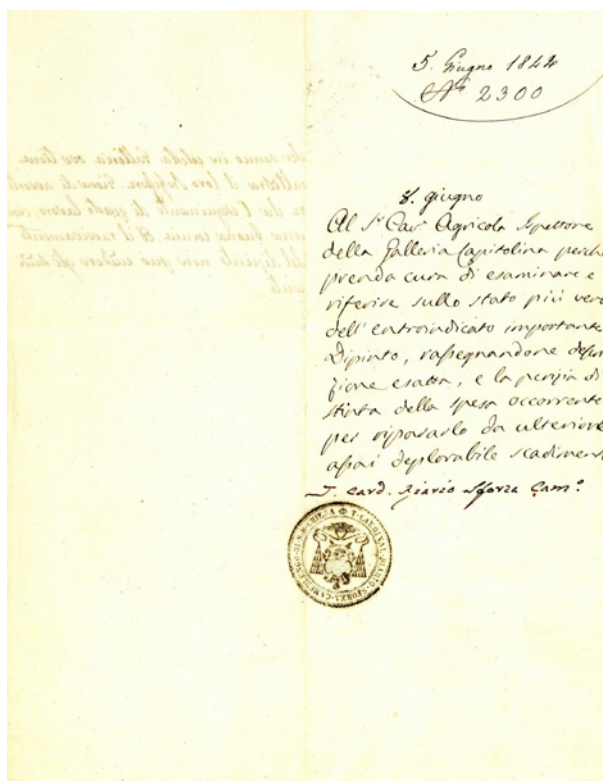 5. Giugno 1844
Nº 2300
8. giugno
Al Sr Cav. Agricola Ispettore
della Galleria Capitolina perchè
prenda cura di esaminare e
riferire sullo stato più vero
dell'entroindicato importante
Dipinto, rassegnandone descri
zione esatta, e la perizia di
stinta della spesa occorrente
per ripararlo da ulteriore
assai deplorabile scadimento
T. Card. Riario Sforza Camº
T. CARDINAL RIARIO SFORZA CAMERLENGO DI S. R. CHIESA